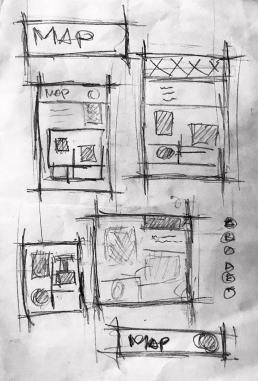 MAP
MAP
MAP